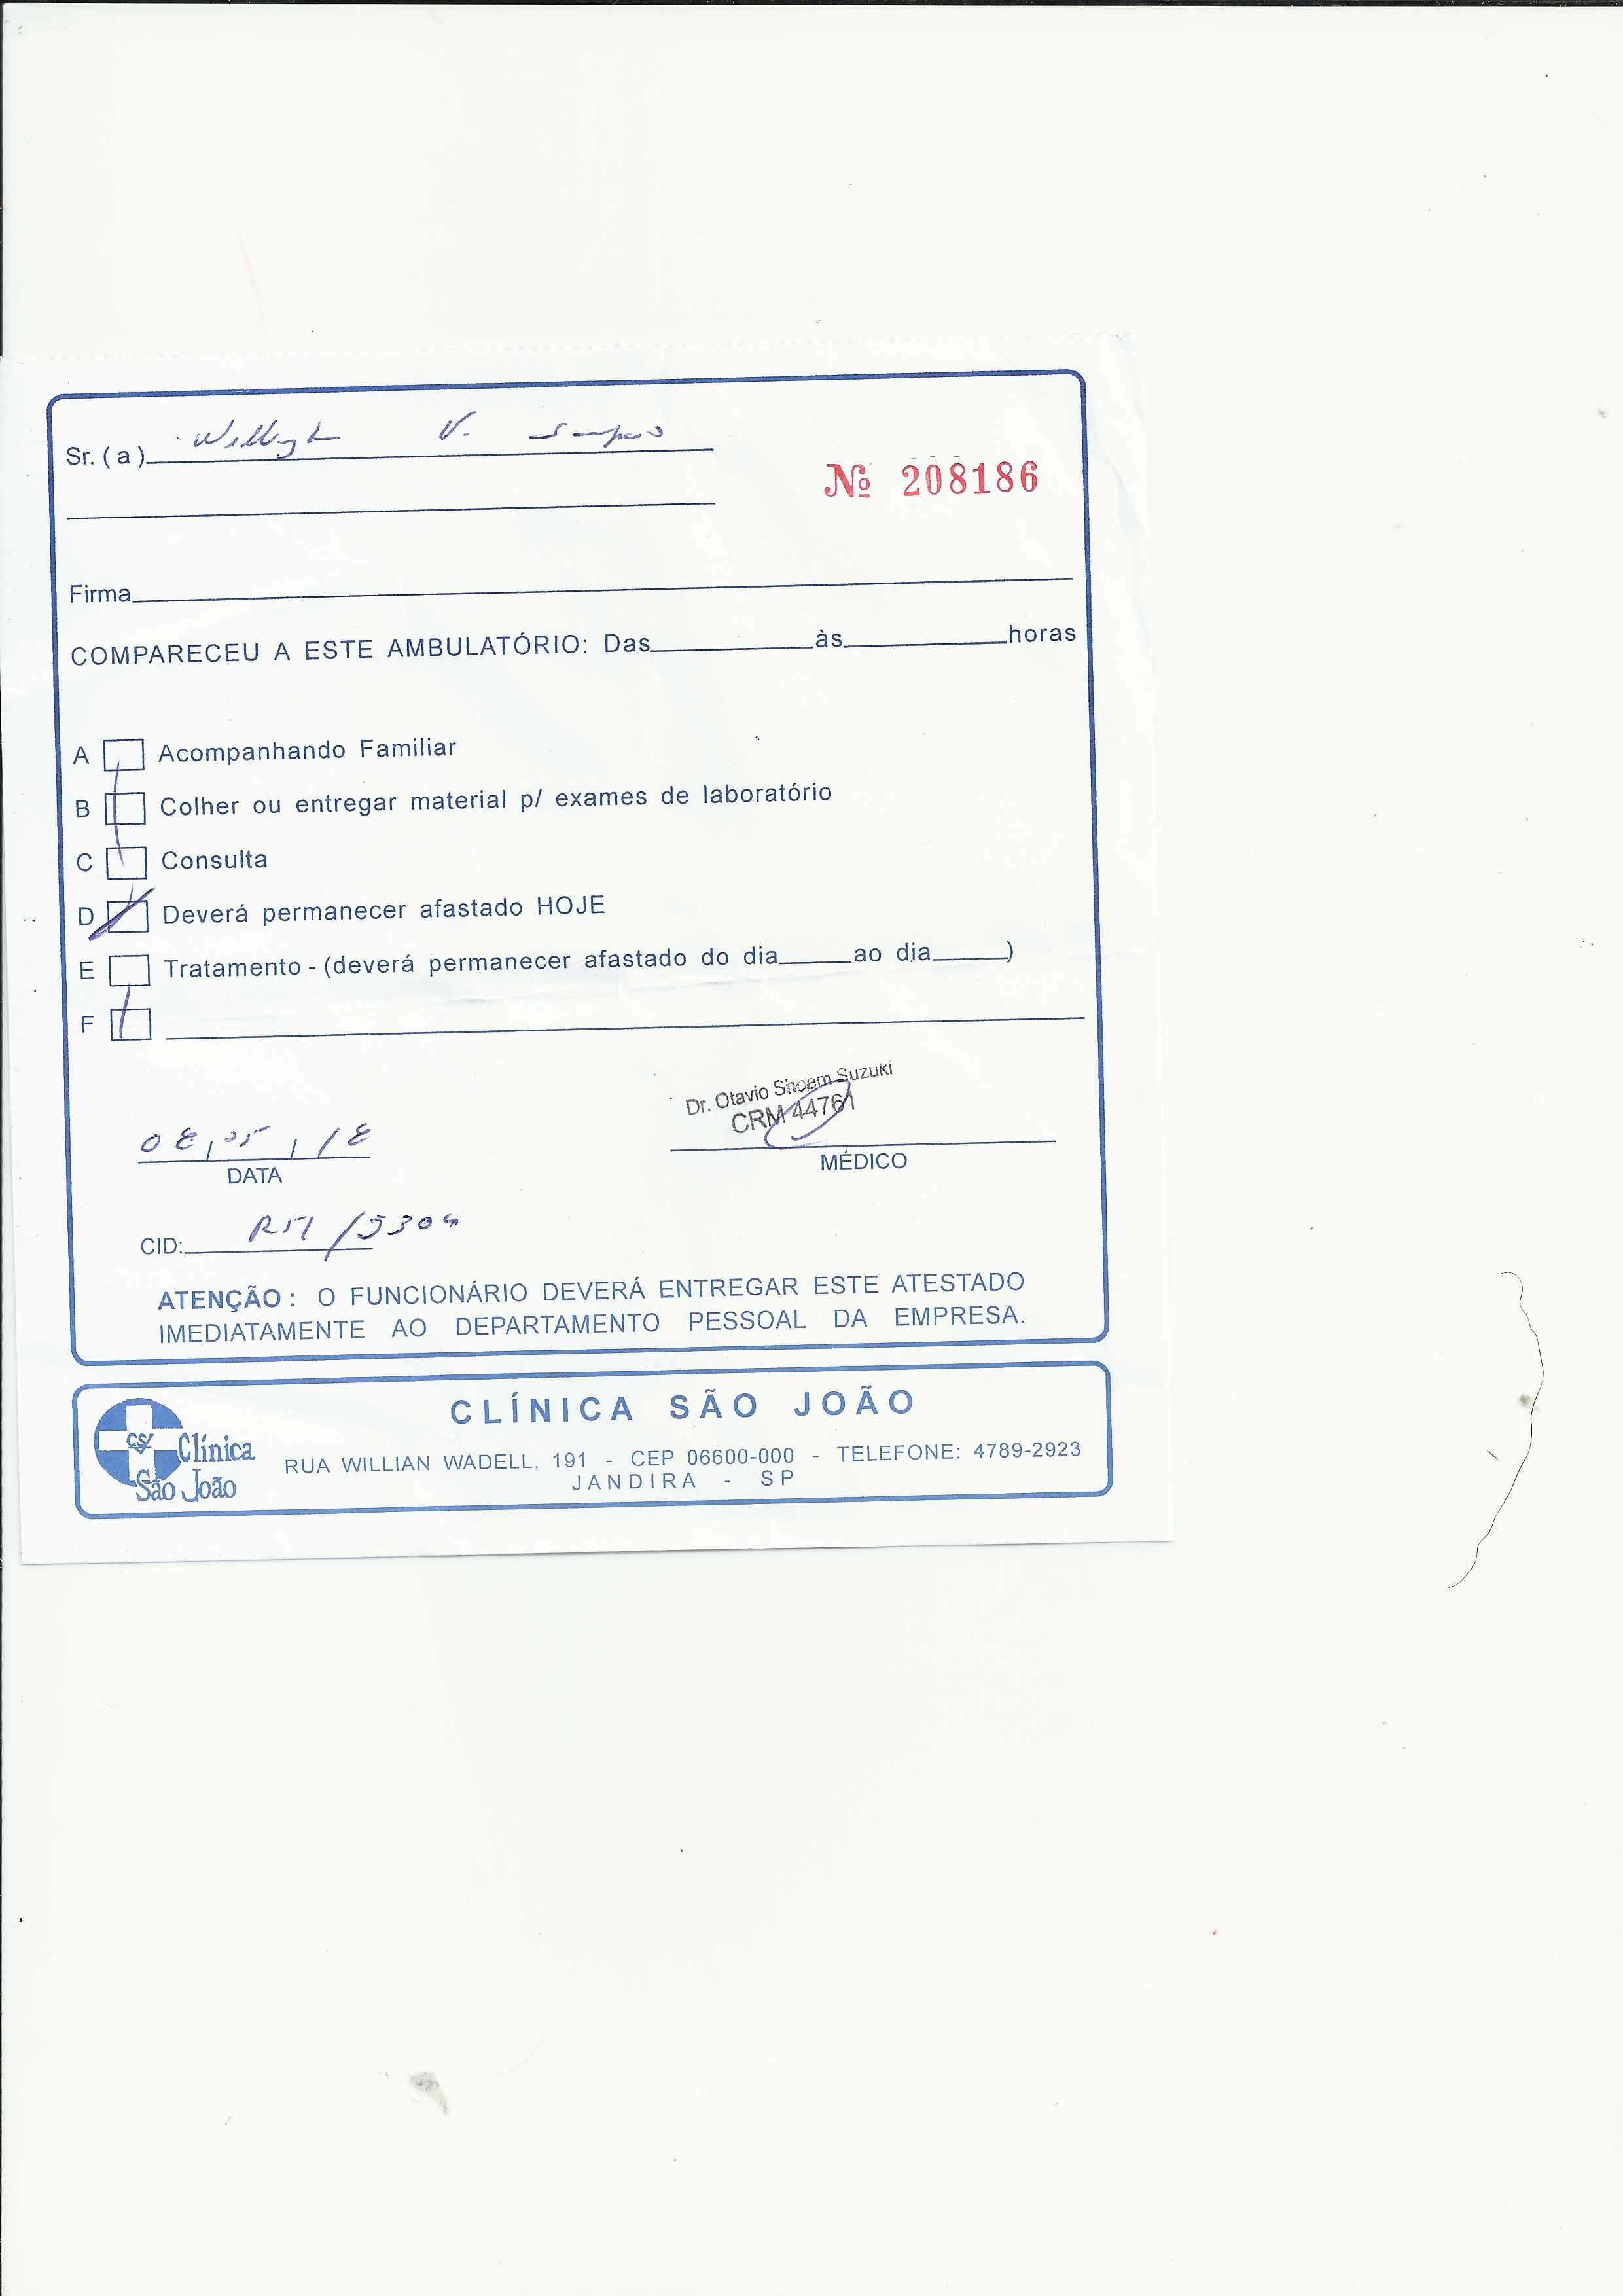 Sr. ( a ) V.
Nº 208186
Firma
COMPARECEU A ESTE AMBULATÓRIO: Das às horas
A Acompanhando Familiar
B Colher ou entregar material p/ exames de laboratório
C Consulta
D Deverá permanecer afastado HOJE
E Tratamento - (deverá permanecer afastado do dia ao dia )
F
Dr. Otavio Shoem Suzuki
CRM 44761
08, 05, 18
DATA
MÉDICO
CID: R51
ATENÇÃO : O FUNCIONÁRIO DEVERÁ ENTREGAR ESTE ATESTADO
IMEDIATAMENTE AO DEPARTAMENTO PESSOAL DA EMPRESA.
CSJ Clínica
São João
CLÍNICA SÃO JOÃO
RUA WILLIAN WADELL, 191 - CEP 06600-000 - TELEFONE: 4789-2923
JANDIRA - SP